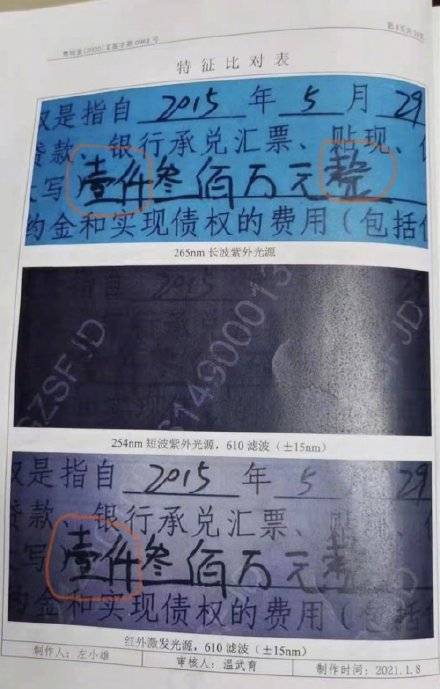 特征比对表
权是指自 2015 年 5 月 29
贷款、银行承兑汇票、贴现、
大写 壹仟叁佰万元整
约金和实现债权的费用（包括
265nm 长波紫外光源
2015
254nm 短波紫外光源，610 滤波（±15nm）
权是指自 2015 年 5 月 29
贷款、银行承兑汇票、贴现、
大写 壹仟叁佰万元整
约金和实现债权的费用（包括
红外激发光源，610 滤波（±15nm）
制作人：左小雄 审核人：温武育 制作时间：2021.1.8
GZSFJD